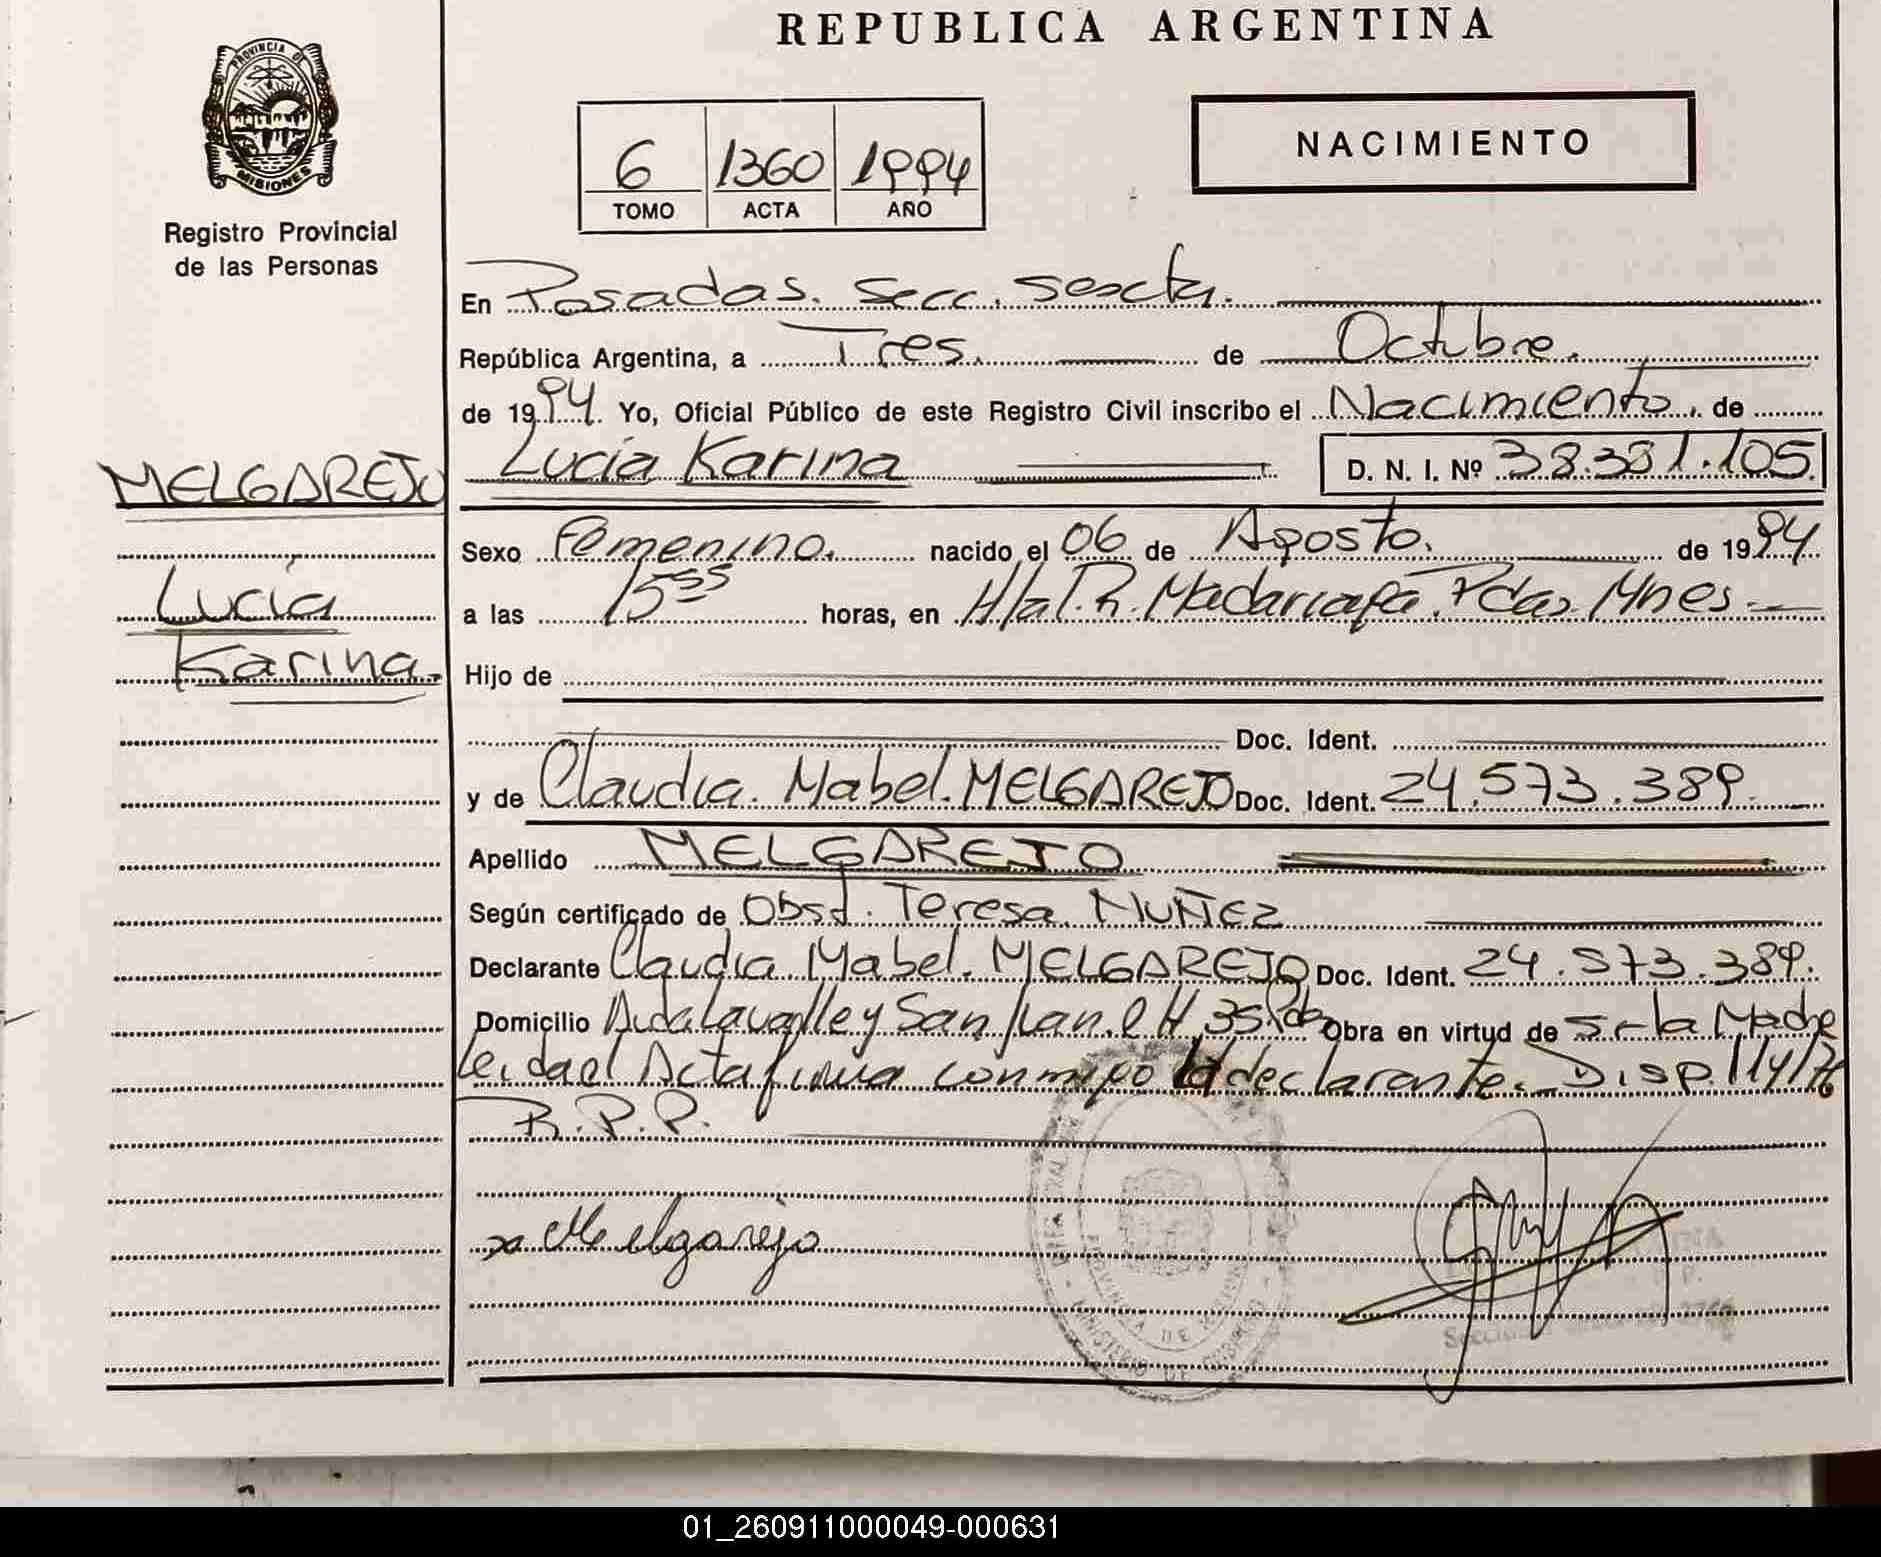 REPUBLICA ARGENTINA
PROVINCIA DE
MISIONES
Registro Provincial
de las Personas
6 1360 1994
TOMO ACTA AÑO
NACIMIENTO
En Posadas. Secc. Sexta.
República Argentina, a Tres. de Octubre.
de 1994. Yo, Oficial Público de este Registro Civil inscribo el Nacimiento, de
Lucía Karina D. N. I. Nº 38.381.105
MELGAREJO
Lucía
Karina
Sexo Femenino. nacido el 06 de Agosto. de 1994
a las 15 55 horas, en H/al. R. Madariaga. Pdas. Mnes.
Hijo de
Doc. Ident.
y de Claudia. Mabel. MELGAREJO Doc. Ident. 24.573.389.
Apellido MELGAREJO
Según certificado de Obst. Teresa MUÑEZ
Declarante Claudia Mabel. MELGAREJO Doc. Ident. 24.573.389.
Domicilio Avda Lavalle y San Juan. Obra en virtud de Ser la Madre
Leida el Acta firma conmigo la declarante. Disp. 114/76
R.P.P.
x Melgarejo
MINISTERIO DE GOBIERNO
PROVINCIA DE MISIONES
01_260911000049-000631